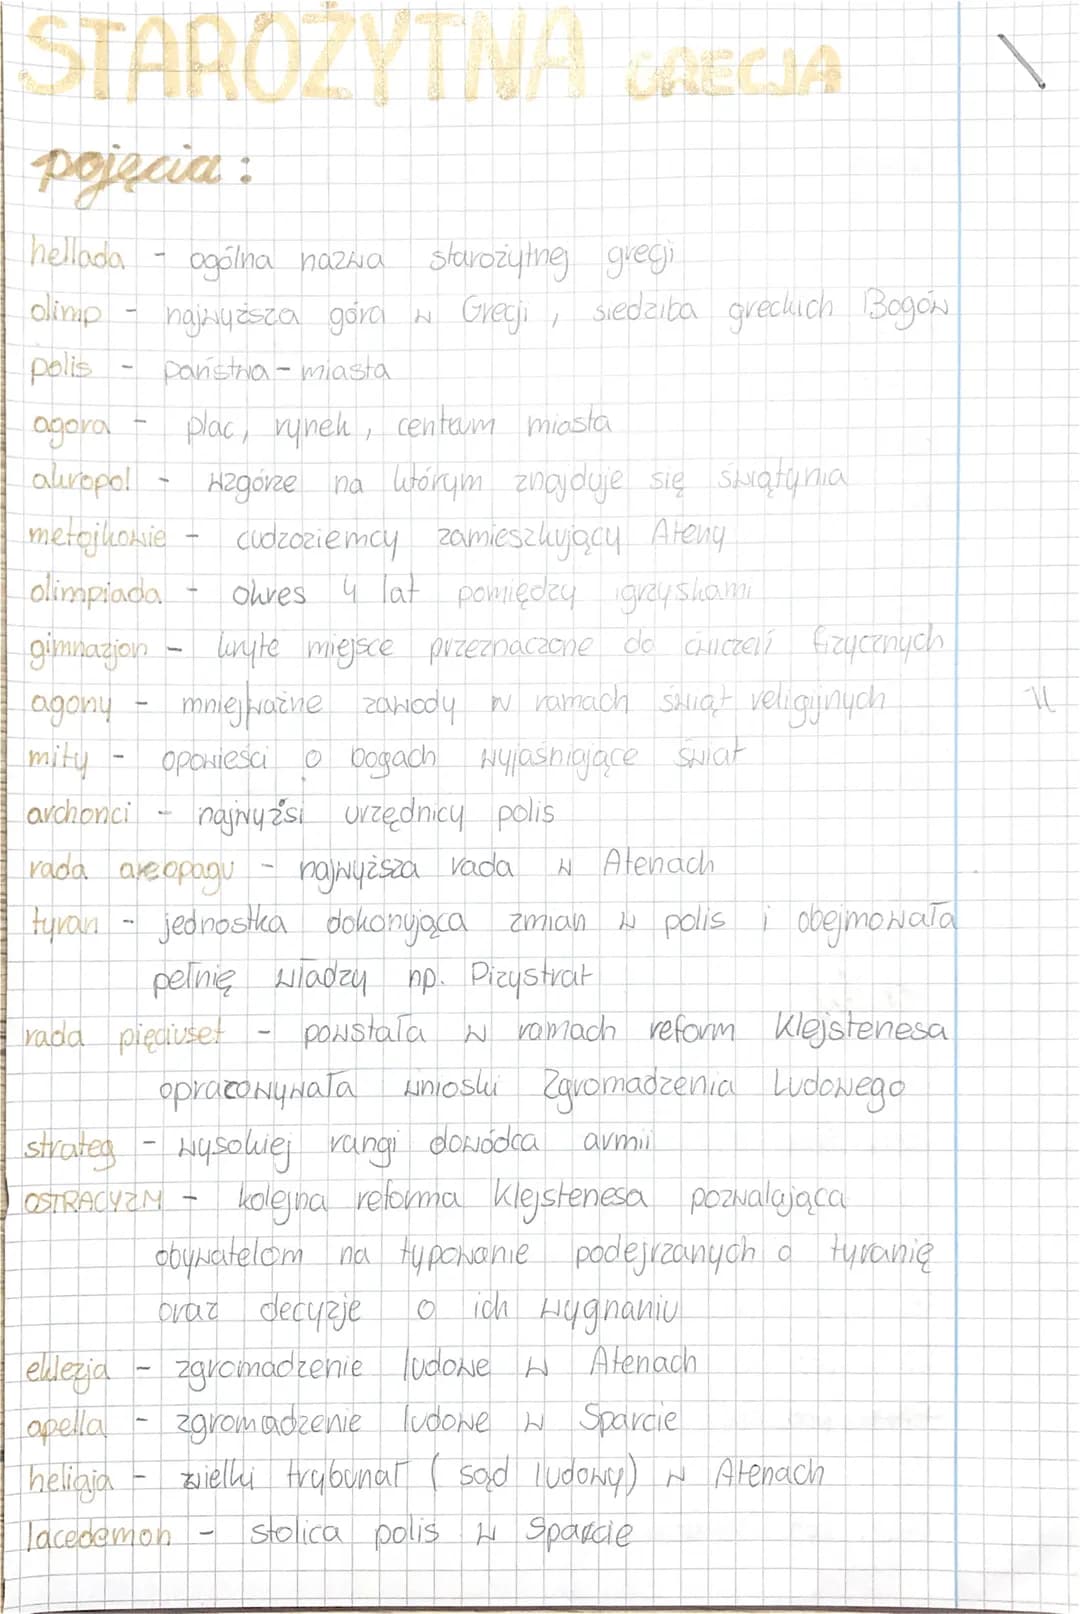 STAROŻYTNA GRECJA
pojęcia:
hellada - ogólna nazwa starożytnej grecji
olimp - najwyższa góra w Grecji, siedziba greckich Bogów
polis - państwa-miasta
agora - plac, rynek, centrum miasta
akropol - wzgórze na którym znajduje się świątynia
metojkowie - cudzoziemcy zamieszkujący Ateny
olimpiada - okres 4 lat pomiędzy igrzyskami
gimnazjon - kryte miejsce przeznaczone do ćwiczeń fizycznych
agony - mniej ważne zawody w ramach świąt religijnych
mity - opowieści o bogach wyjaśniające świat
archonci - najwyżsi urzędnicy polis
rada areopagu - najwyższa rada w Atenach
tyran - jednostka dokonująca zmian w polis i obejmowała
pełnię władzy np. Pizystrat
rada pięciuset - powstała w ramach reform Klejstenesa
opracowywała wnioski Zgromadzenia Ludowego
strateg - wysokiej rangi dowódca armii
OSTRACYZM - kolejna reforma Klejstenesa pozwalająca
obywatelom na typowanie podejrzanych o tyranię
oraz decyzje o ich wygnaniu
eklezja - zgromadzenie ludowe w Atenach
apella - zgromadzenie ludowe w Sparcie
heliaja - wielki trybunał (sąd ludowy) w Atenach
lacedemon - stolica polis w Sparcie